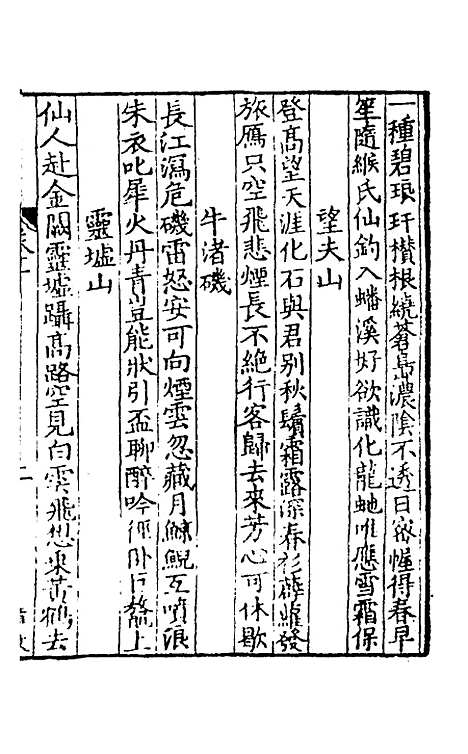 一種碧琅玕攅根繞蒼嵓濃陰不透日密幄得春早
笙隨緱氏仙釣入蟠溪好欲識化龍虵唯應雪霜保
望夫山
登高望天涯化石與君别秋鬢霜露深春衫薜蘿發
旅鴈只空飛悲煙長不絶行客歸去來芳心可休歇
牛渚磯
長江瀉危磯雷怒安可向煙雲忽藏月鯨鯢互噴浪
朱衣叱犀火丹青豈能狀引盃聊醉吟徑卧巨鰲上
靈墟山
仙人赴金闕靈墟躡高路空見白雲飛想來黃鶴去